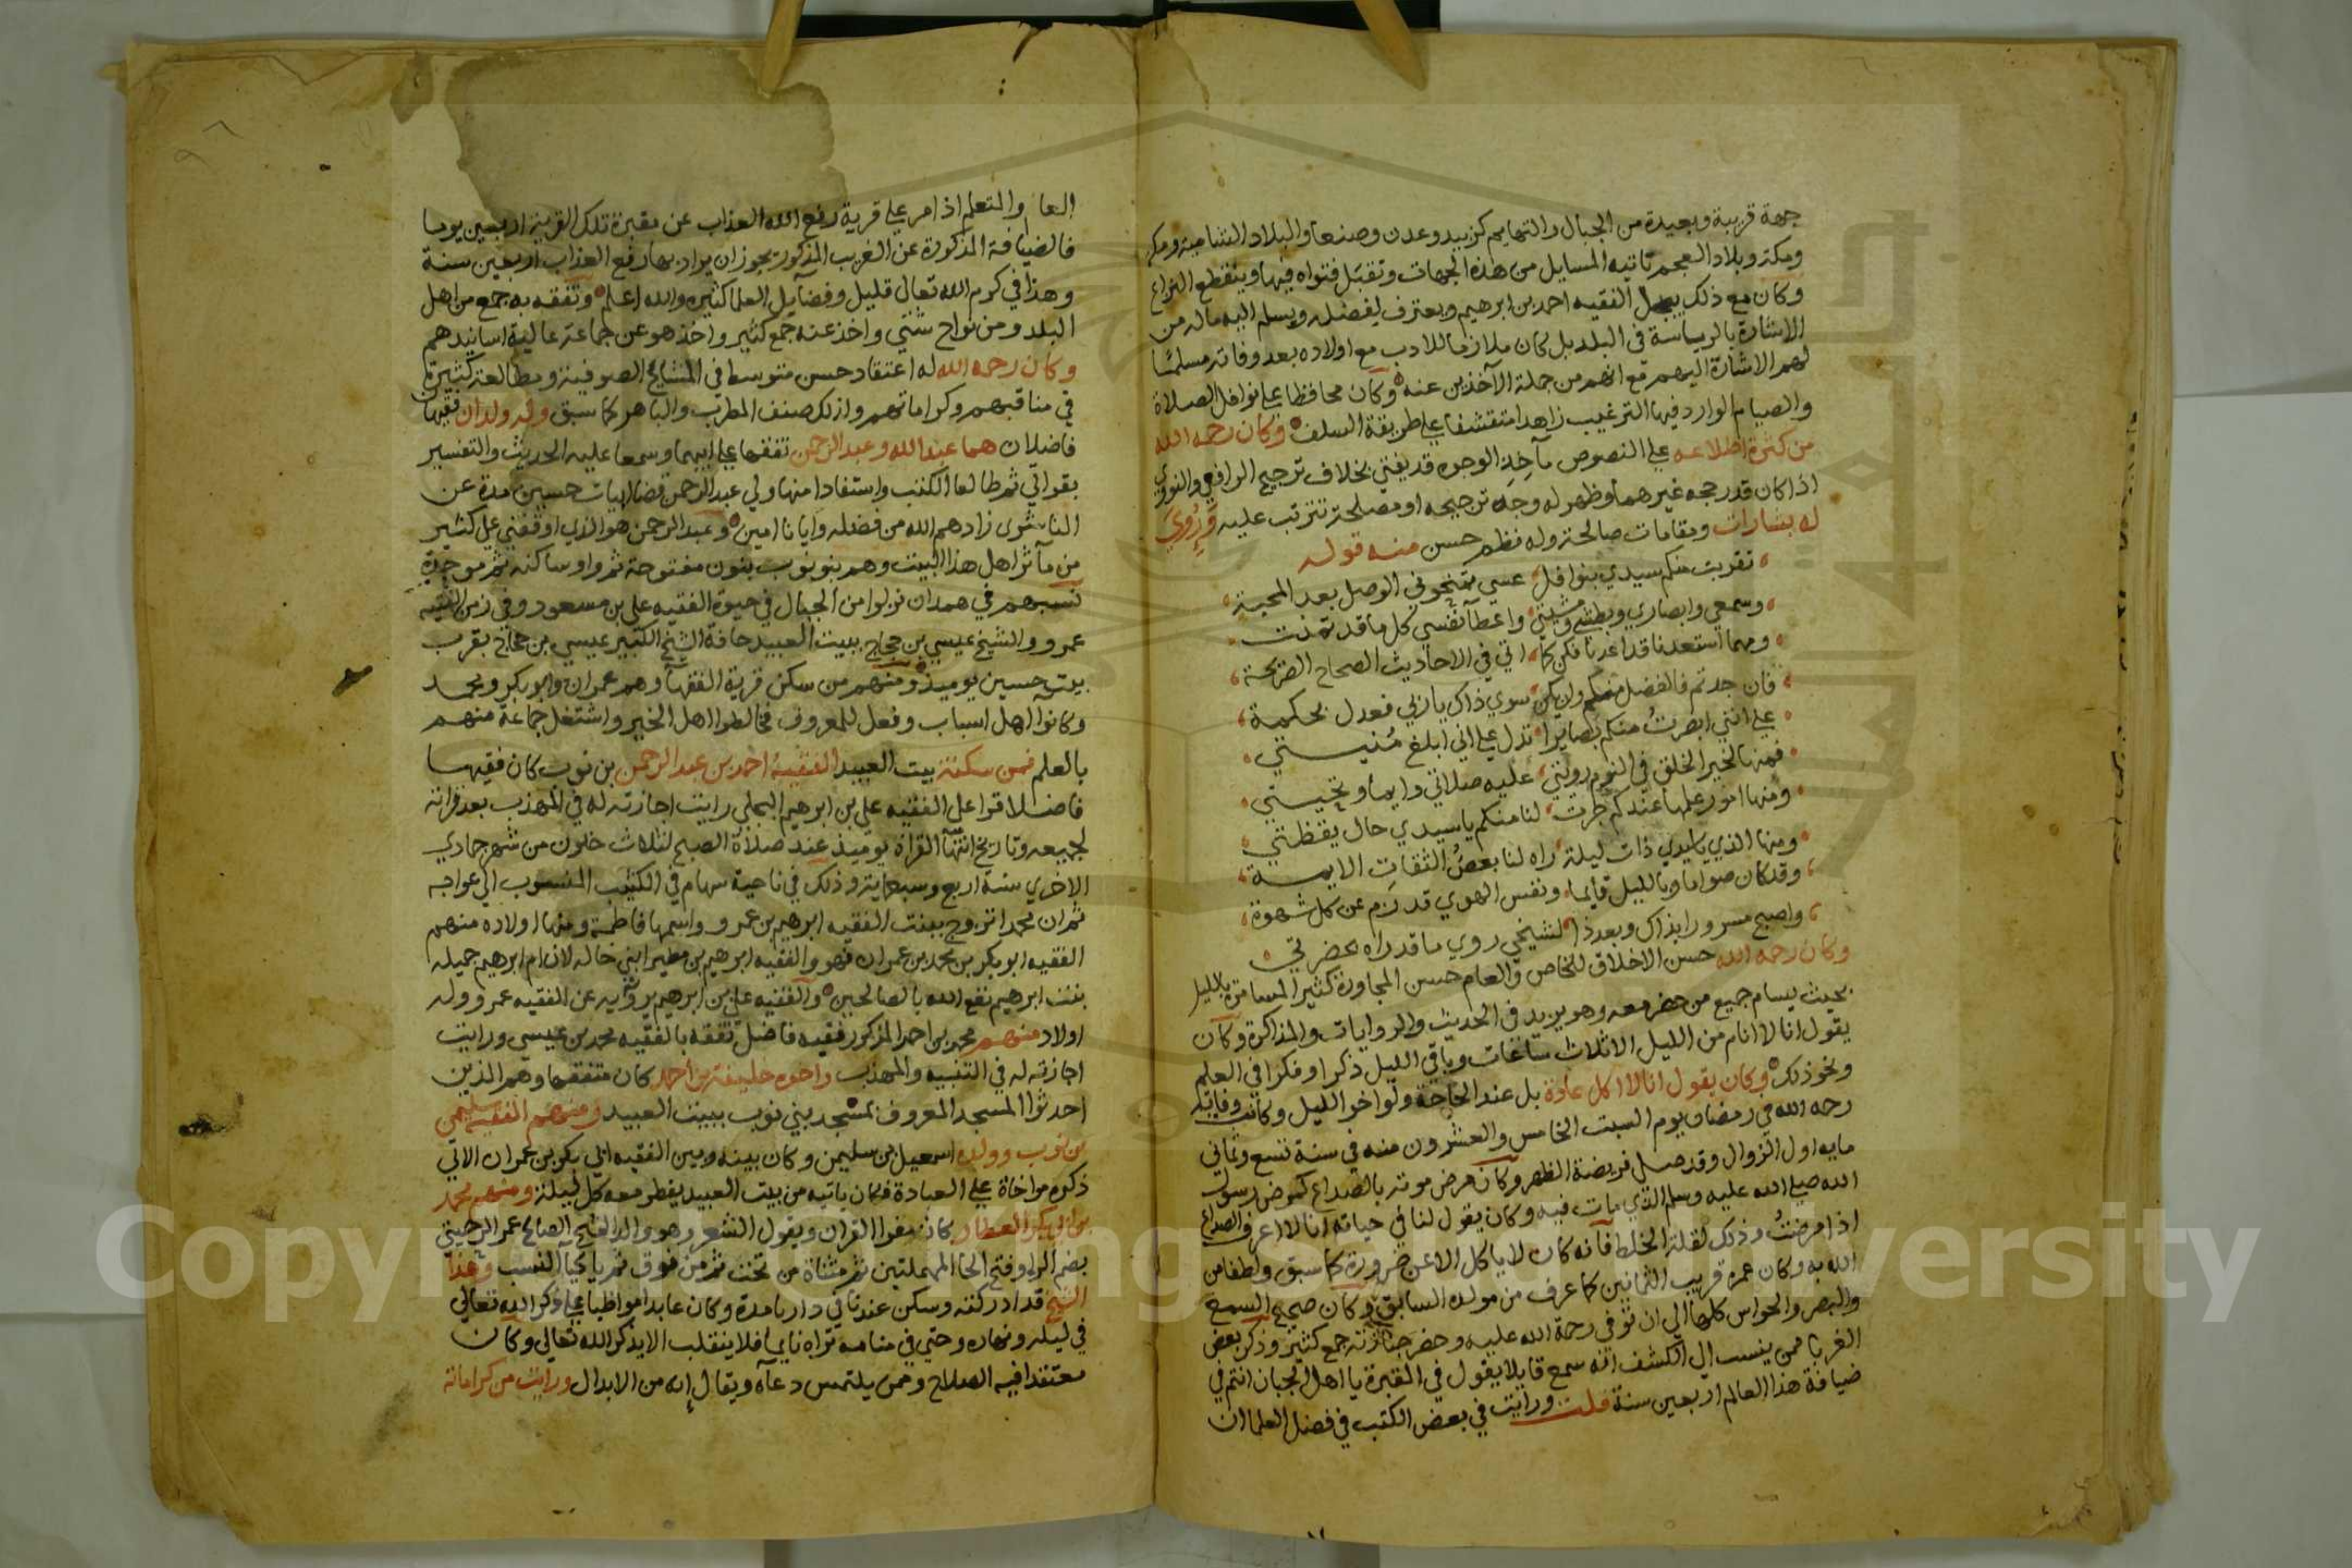 جهة قريبة وبعيدة من الجبال والتهايم كزبيد وعدن وصنعا والبلاد الشامية ومكه
ومكة وبلاد العجم تاتيه المسايل من هذه الجهات وتقبل فتواه فيها وينقطع النزاع
وكان مع ذلك يبجل الفقيه احمد بن ابرهيم ويعترف بفضله ويسلم اليه ماله من
الاشارة بالرياسة في البلد بل كان ملازما للادب مع اولاده بعد وفاته مسلما
لهم الاشارة اليهم مع انهم من جملة الآخذين عنه وكان محافظا على نوافل الصلاة
والصيام الوارد فيها الترغيب زاهدا متقشفا على طريقة السلف وكان رحمه الله
من كثرة اطلاعه على النصوص مآخذ الوجوه قد يفتي بخلاف ترجيح الرافعي والنووي
اذا كان قد رجحه غيرهما وظهر له وجه ترجيحه او مصلحة تترتب عليه وروي
له بشارات ومقامات صالحة وله نظم حسن منه قوله
تقربت منكم سيدي بنوافل عسى تمنحوني الوصل بعد المحبة
وسمعي وابصاري وبطشي ومشيتي واعطآ نفسي كل ما قد تمنت
ومهما استعدنا قد اعدنا فكن كما اتى في الاحاديث الصحاح الصريحة
فان جدتم فالفضل منكم وان يكن سوى ذاك يا ربي فعدل بحكمة
على انني ابصرت منكم بصايرا تدل على اني ابلغ منيتي
فمنها لخير الخلق في النوم رويتي عليه صلاتي دايما وتحيتي
ومنها امور علمها عندكم جرت لنا منكم يا سيدي حال يقظتي
ومنها الذي ذات ليلة راه لنا بعض الثقات الايمة
وقد كان صواما وبالليل قايما ونفس الهوى قد زم عن كل شهوة
واصبح مسرورا بذاك وبعد ذا لشيخي روى ما قد راه بحضرتي
وكان رحمه الله حسن الاخلاق للخاص والعام حسن المجاورة كثير المسامرة بالليل
بحيث يسام جميع من حضر معه وهو يزيد في الحديث والروايات والمذاكرة وكان
يقول انا لا انام من الليل الا ثلاث ساعات وباقي الليل ذكرا وفكرا في العلم
ونحو ذلك وكان يقول انا لا اكل عادة بل عند الحاجة ولو اخر الليل وكانت وفاته
رحمه الله في رمضان يوم السبت الخامس والعشرون منه في سنة تسع وثماني
مايه اول الزوال وقد صلى فريضة الظهر وكان مرض موته بالصداع كمرض رسول
الله صلى الله عليه وسلم الذي مات فيه وكان يقول لنا في حياته انا لا اعرف الصداع
اذا مرضت وذلك لقلة الخلط فانه كان لا ياكل الا عن ضرورة كما سبق ولطفا من
الله به وكان عمره قريب الثمانين كما عرف من مولده السابق وكان صحيح السمع
والبصر والحواس كلها الى ان توفي رحمة الله عليه وحضر جنازته جمع كثير وذكر بعض
الغربا ممن ينسب الى الكشف انه سمع قايلا يقول في المقبرة يا اهل الجبان انتم في
ضيافة هذا العالم اربعين سنة قلت ورايت في بعض الكتب في فضل العلما ان
العالم والمتعلم اذا مر على قرية رفع الله العذاب عن مقبرة تلك القرية اربعين يوما
فالضيافة المذكورة عن الغريب المذكور يجوز ان يراد بها رفع العذاب اربعين سنة
وهذا في كرم الله تعالى قليل وفضآيل العلما كثيره والله اعلم وتفقه به جمع من اهل
البلد ومن نواح شتى واخذ عنه جمع كثير واخذ هو عن جماعة عالية اسانيدهم
وكان رحمه الله له اعتقاد حسن متوسط في المشايخ الصوفية ومطالعة كثيرة
في مناقبهم وكراماتهم ولذلك صنف المطرب والباهر كما سبق وله ولدان فقيهان
فاضلان هما عبد الله وعبد الرحمن تفقها على ابيهما وسمعا عليه الحديث والتفسير
بقراتي ثم طالعا الكتب واستفادا منها ولي عبد الرحمن قضا ابيات حسين مدة عن
الناشري زادهم الله من فضله وايانا امين وعبد الرحمن هو الذي اوقفني على كثير
من مآثر اهل هذا البيت وهم بنو نوب بنون مفتوحة ثم واو ساكنه ثم موحدة
نسبهم في همدان نزلوا من الجبال في حيوة الفقيه على بن مسعود وفي زمن الفقيه
عمرو والشيخ عيسى بن حجاج ببيت العبيد حافة الشيخ الكبير عيسى بن حجاج بقرب
بيت حسين يوميذ ومنهم من سكن قرية الفقهآ وهم عمران وابو بكر ومحمد
وكانوا اهل اسباب وفعل للمعروف فخالطوا اهل الخير واشتغل جماعة منهم
بالعلم فمن سكنة بيت العبيد الفقيه احمد بن عبد الرحمن بن نوب كان فقيها
فاضلا قرا على الفقيه على بن ابرهيم البجلي رايت اجازته له في المهذب بعد قراته
لجميعه وتاريخ انتهآ القراة يوميذ عند صلاة الصبح لثلاث خلون من شهر جمادي
الاخرى سنة اربع وسبعماية وذلك في ناحية سهام في الكثيب المنسوب الى عواجه
ثم ان محمدا تزوج ببنت الفقيه ابرهيم بن عمرو واسمها فاطمة ومنها اولاده منهم
الفقيه ابو بكر بن محمد بن عمران فهو والفقيه ابرهيم بن مطير ابني خاله لان ام ابرهيم جميله
بنت ابرهيم نفع الله بالصالحين والفقيه على بن ابرهيم يروايه عن الفقيه عمرو وله
اولاد منهم محمد بن احمد المذكور فقيه فاضل تفقه بالفقيه محمد بن عيسى ورايت
اجازته له في التنبيه والمهذب واخوه خليفة بن احمد كان متفقها وهم الذين
احدثوا المسجد المعروف بمسجد بني نوب ببيت العبيد ومنهم الفقيه سليمن
بن نوب وولده اسمعيل بن سليمن وكان بينه وبين الفقيه ابي بكر بن عمران الاتي
ذكره مواخاة على العبادة فكان ياتيه من بيت العبيد يفطر معه كل ليلة ومنهم محمد
بن ابي بكر العطار كان مقرا القران ويقول الشعر وهو والد الشيخ الصالح عمر الرحيتي
بضم الرا وفتح الحا المهملتين ثم مثناة من تحت ثم من فوق ثم ياءآ النسب وهذا
الشيخ قد ادركته وسكن عندنا في دارنا مدة وكان عابدا مواظبا على ذكر الله تعالى
في ليله ونهاره وحتى في منامه تراه نايما فلا ينقلب الا يذكر الله تعالى وكان
معتقدا فيه الصلاح وممن يلتمس دعآه ويقال انه من الابدال ورايت من كراماته
Copyright © King Saud University